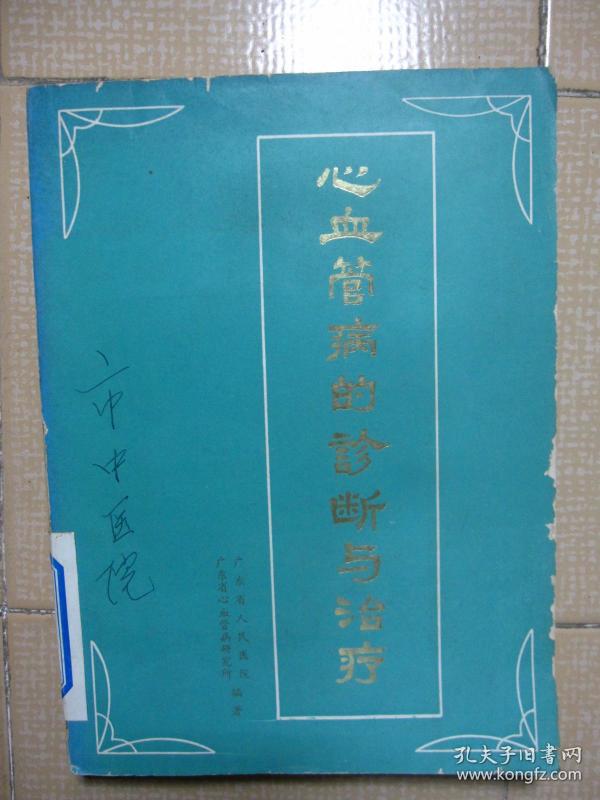 心血管病的診断与治疗
广东省人民医院
广东省心血管病研究所
编著
市中医院
孔夫子旧书网
www.kongfz.com